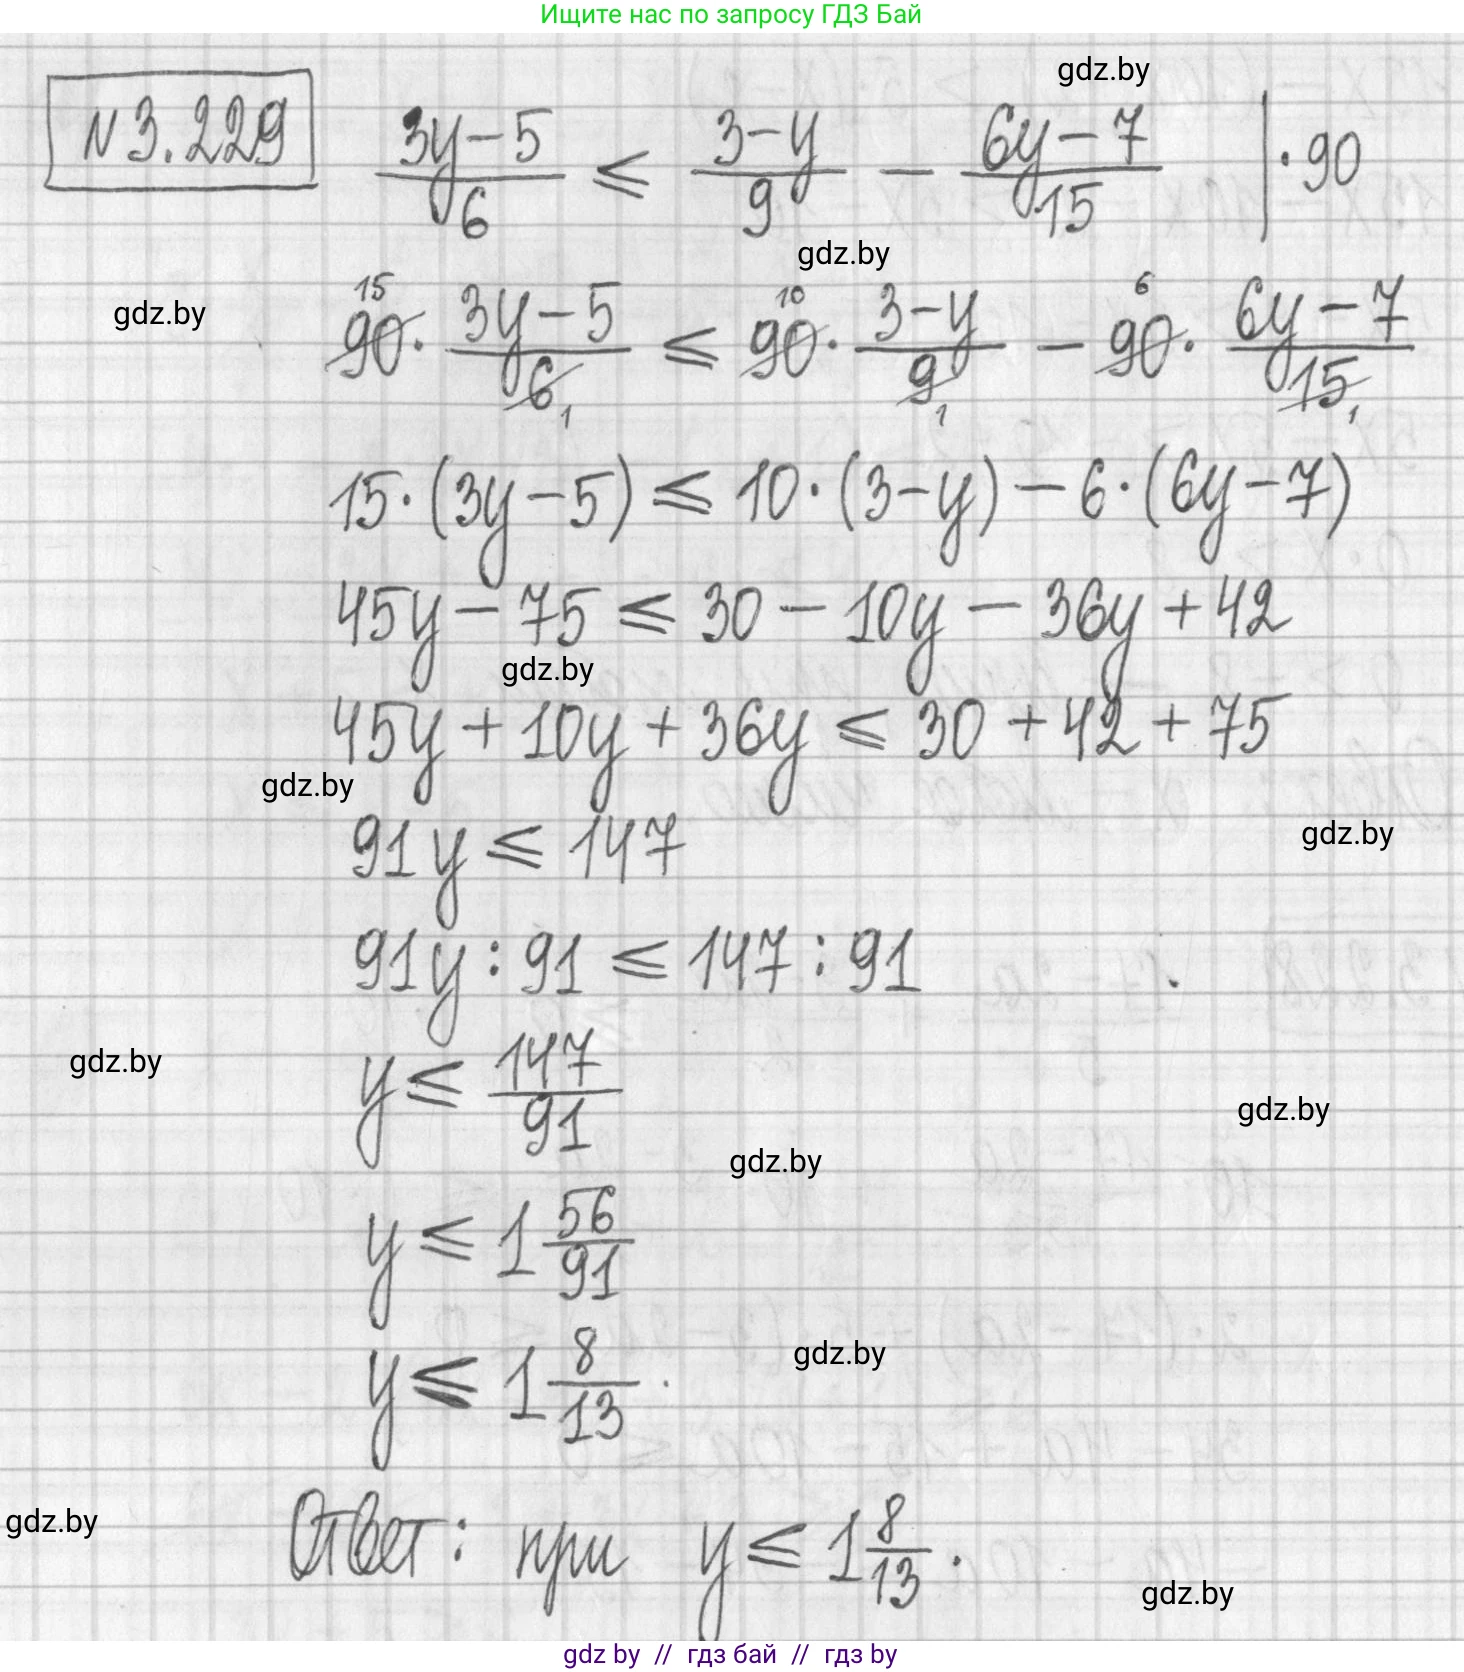 Ищите нас по запросу ГДЗ Бай
gdz.by
N 3.229 (3y-5)/6 ≤ (3-y)/9 - (6y-7)/15 | ·90
gdz.by
gdz.by
90¹⁵ · (3y-5)/6₁ ≤ 90¹⁰ · (3-y)/9₁ - 90⁶ · (6y-7)/15₁
15·(3y-5) ≤ 10·(3-y) - 6·(6y-7)
45y - 75 ≤ 30 - 10y - 36y + 42
gdz.by
45y + 10y + 36y ≤ 30 + 42 + 75
gdz.by
gdz.by
91y ≤ 147
91y : 91 ≤ 147 : 91
y ≤ 147/91
gdz.by
gdz.by
gdz.by
y ≤ 1 56/91
y ≤ 1 8/13.
gdz.by
gdz.by
Ответ: при y ≤ 1 8/13.
gdz.by
gdz by // гдз бай // гдз by